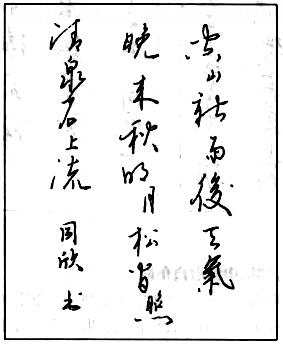 空山新雨後天氣
晚来秋明月松間照
清泉石上流 周欣书